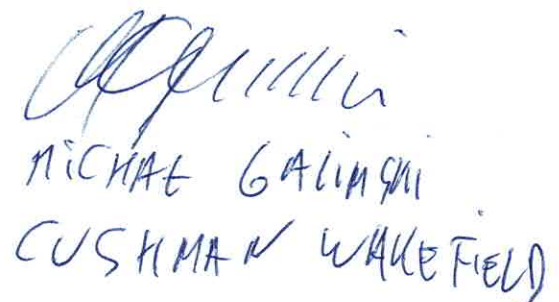 MICHAŁ GALIMSKI
CUSHMAN WAKEFIELD